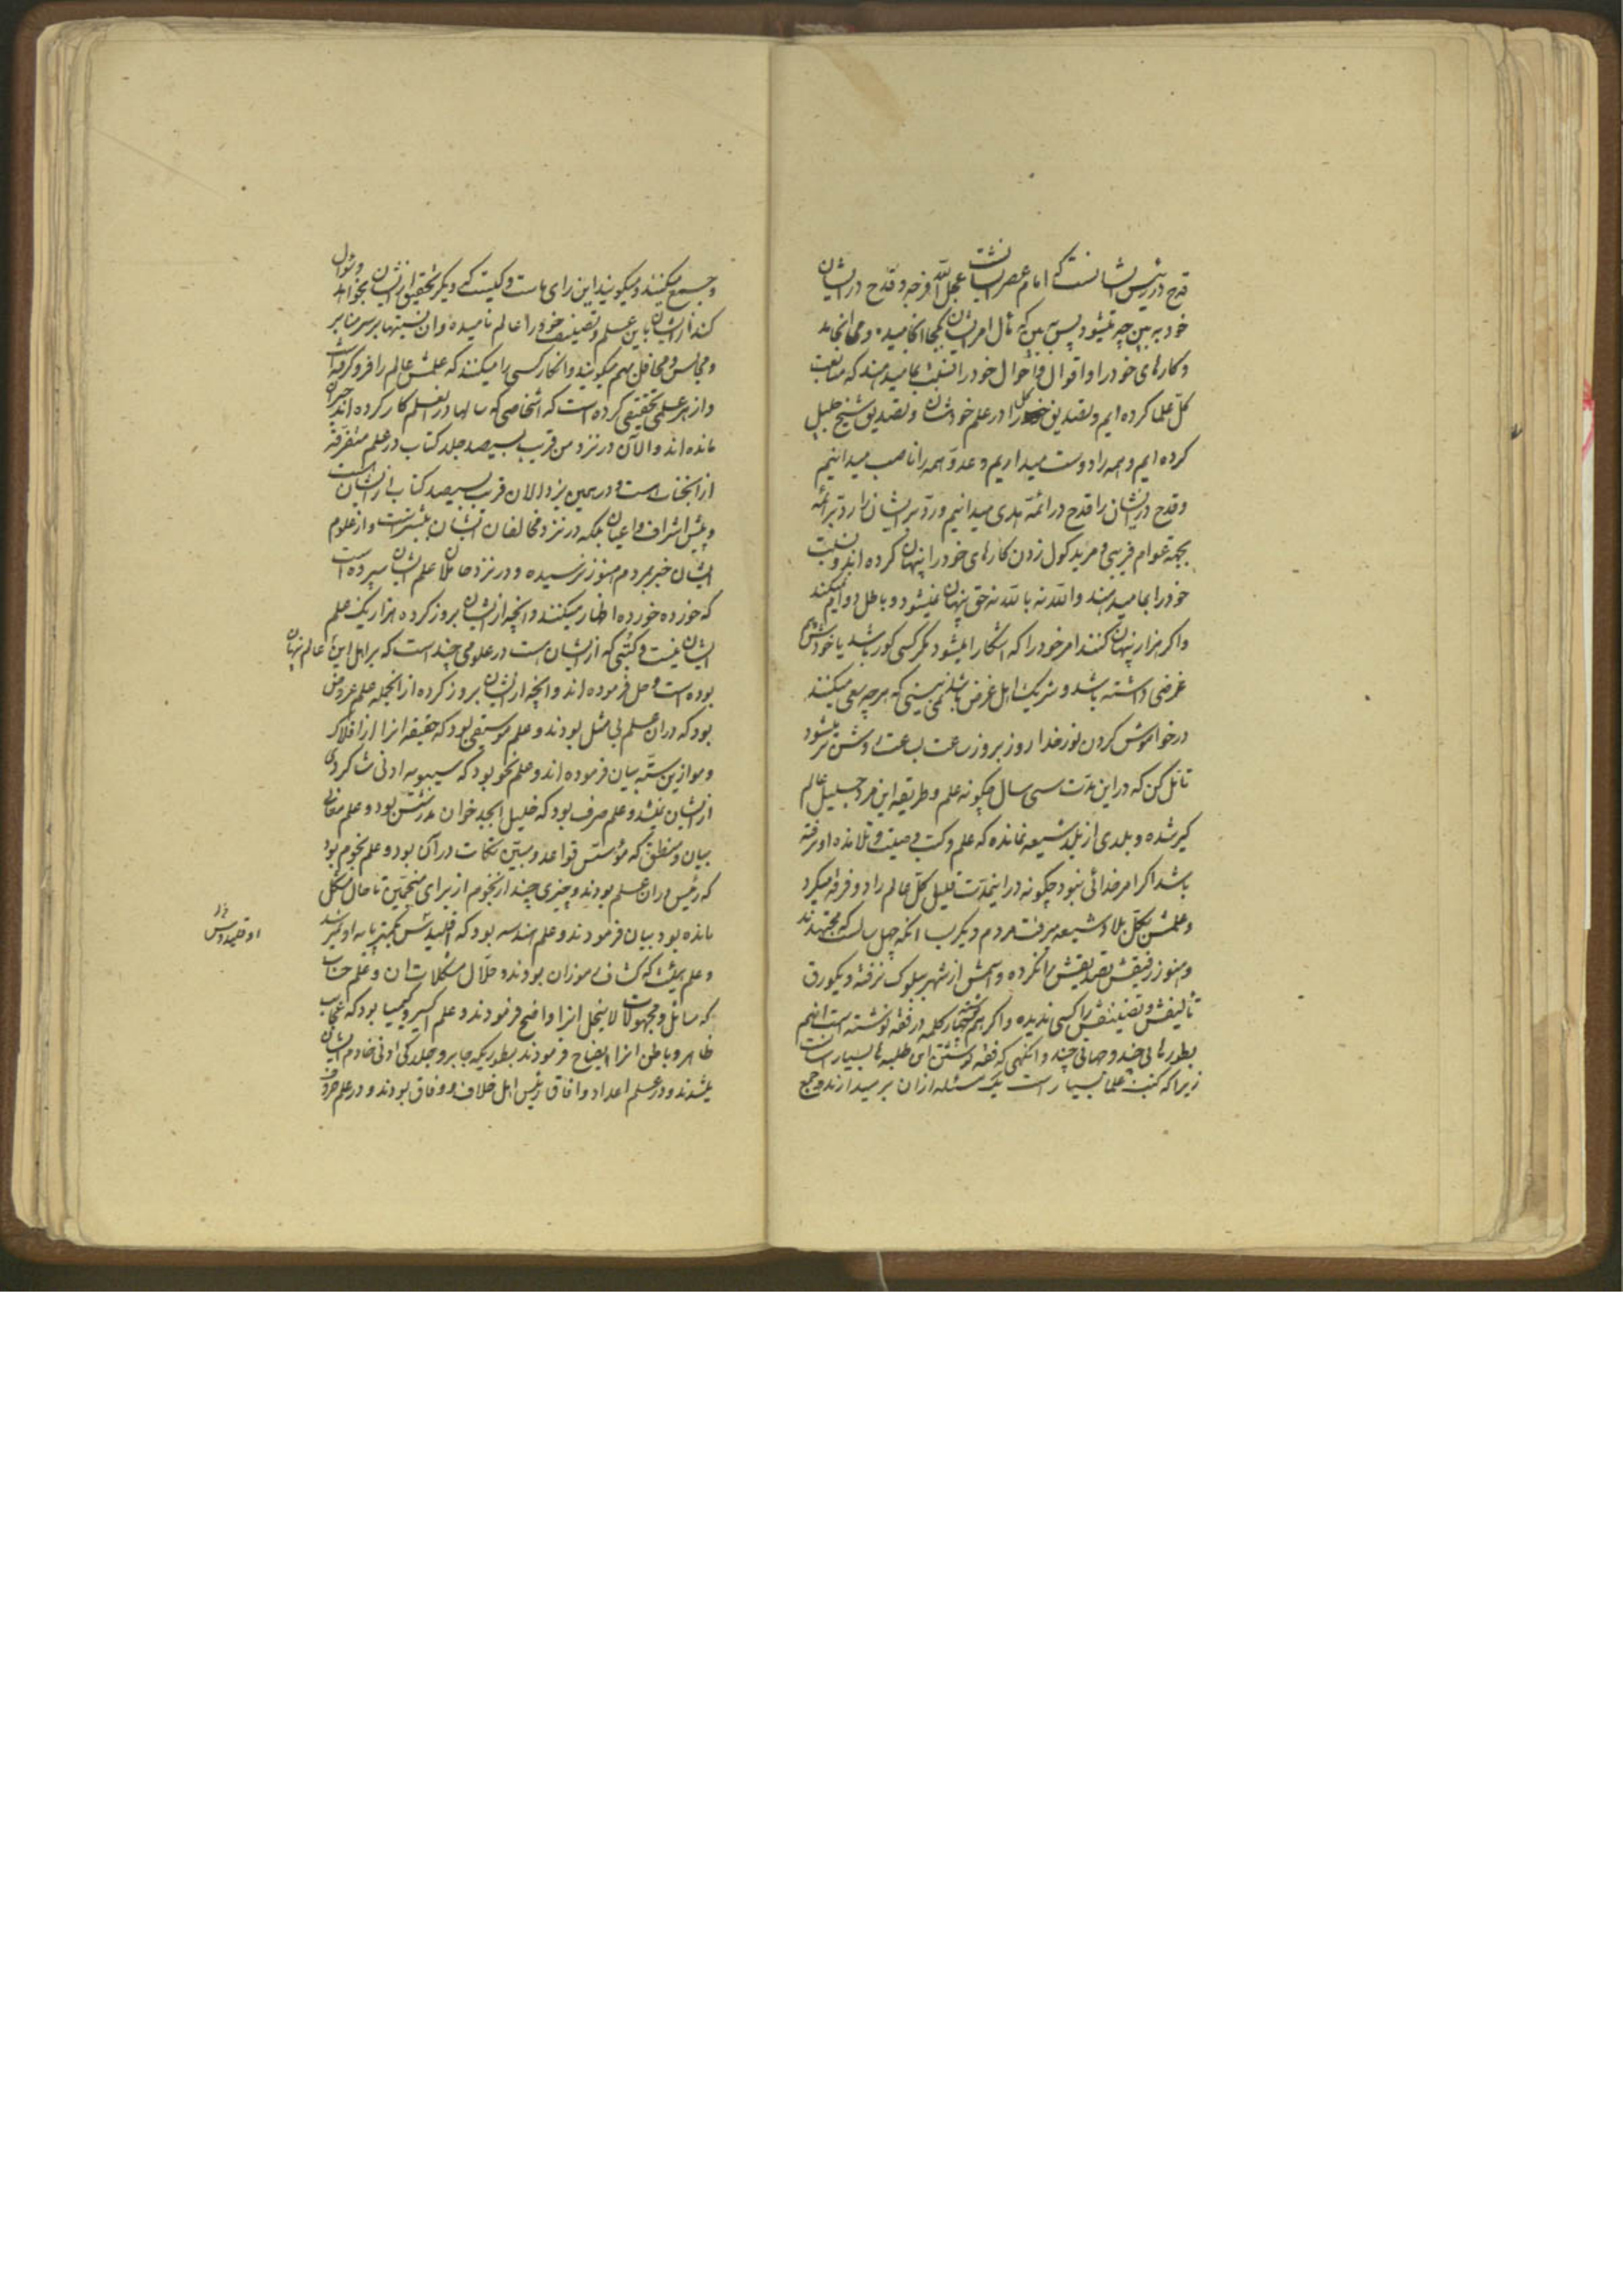 قدح در رئیس ایشانست که امام عصر ایشانست عجل الله فرجه و قدح در ایشان
خود ببین چه میشود پس ببین که مآل امر ایشان بکجا انجامیده و می انجامد
و کارهای خود را و اقوال و احوال خود را نسبت بما میدهند که متابعت
کل علما کرده ایم و تصدیق کل را در علم خودشان و تصدیق شیخ جلیل
کرده ایم و همه را دوست میداریم و عدو همه را ناصب میدانیم
و قدح در ایشان را قدح در ائمه هدی میدانیم و رد بر ایشان را رد بر ائمه
بجهة عوام فریبی و مرید گول زدن کارهای خود را پنهان کرده اند و نسبت
خود را بما میدهند والله نه بالله نه حق پنهان نمیشود و باطل دوام نمیکند
و اگر هزار پنهان کنند امر خود را که اشکارا میشود مگر کسی کور باشد یا خودش هم
غرضی داشته باشد و شریک اهل غرض باشد نمی بینی که هرچه سعی میکنند
در خواموش کردن نور خدا روز بروز ساعت بساعت روشن تر میشود
تأمل کن که در این مدت سی سال چگونه علم و طریقه این فرد جلیل عالم
گیر شده و بلدی از بلد شیعه نمانده که علم و کتب و صیت و تلامذه او نرفته
باشد اگر امر خدائی نبود چگونه در اینمدت قلیل کل عالم را دو فرقه میکرد
و علمش بکل بلاد شیعه میرفت مردم دیگر با انکه چهل سالست که مجتهدند
و هنوز رفیقش تصدیقش را نکرده و اسمش از شهر ببلوک نرفته و یکورق
تألیفش و تصنیفش را کسی ندیده و اگر هم چهار کلمه در فقه نوشته است انهم
بطورهای چند و جهای چند وانگهی که فقه نوشتن ای طلبه ها بسیار اسانست
زیرا که کتب علما بسیار است یک مسئله از ان بر میدارند و جمع
و جمع میکنند و میگویند این رای ماست و کیست که دیگر تحقیق از ایشان بخواهد و سئوال
کند از ایشان باین علم و تصنیف خود را عالم نامیده و ان نسبتها بر سر منابر
و مجالس و محافل بهم میگویند و انکار کسی را میکنند که علمش عالم را فرو گرفته است
و از هر علمی تحقیقی کرده است که اشخاصی که سالها در انعلم کار کرده اند حیران
مانده اند و الآن در نزد من قریب بسیصد جلد کتاب در علم متفرقه
از انجنابست و در همین یزد الان قریب بسیصد کتاب از ایشان است
و پیش اشراف و اعیان بلکه در نزد مخالفان ایشان بیشتر است و از علوم
ایشان خبر بمردم هنوز نرسیده و در نزد حاملان علم ایشان سپرده است
که خورده خورده اظهار میکنند و انچه از ایشان بروز کرده هزار یک علم
ایشان نیست و کتبی که از ایشان است در علومی چند است که بر اهل این عالم پنهان
بوده است و حل فرموده اند و انچه از ایشان بروز کرده از انجمله علم عروض
بود که در ان علم بی مثل بودند و علم موسیقی بود که حقیقه انرا از افلاک
و موازین سته بیان فرموده اند و علم نحو بود که سیبویه ادنی شاگردی
از ایشان نمیشد و علم صرف بود که خلیل ابجد خوان مدرستش بود و علم معانی
بیان و منطق که مؤسس قواعد و مبین نکات در آن بود و علم نجوم بود
که رئیس در ان علم بودند و چیزی چند از نجوم از برای منجمین تا حال مشکل
مانده بود بیان فرمودند و علم هندسه بود که اقلیدش بکمتر پایه او نمیرسد
و علم هیئت که کشاف رموزان بودند و حلال مشکلات ان و علم حساب
که مسائل و مجهولات لا ینحل انرا واضح فرمودند و علم اکسیر و کیمیا بود که عجایب
ظاهر و باطن انرا ایضاح فرمودند بطوریکه جابر و جلدکی ادنی خادم ایشان
میشدند و در علم اعداد و افاق رئیس اهل خلاف و وفاق بودند و در علم حروف